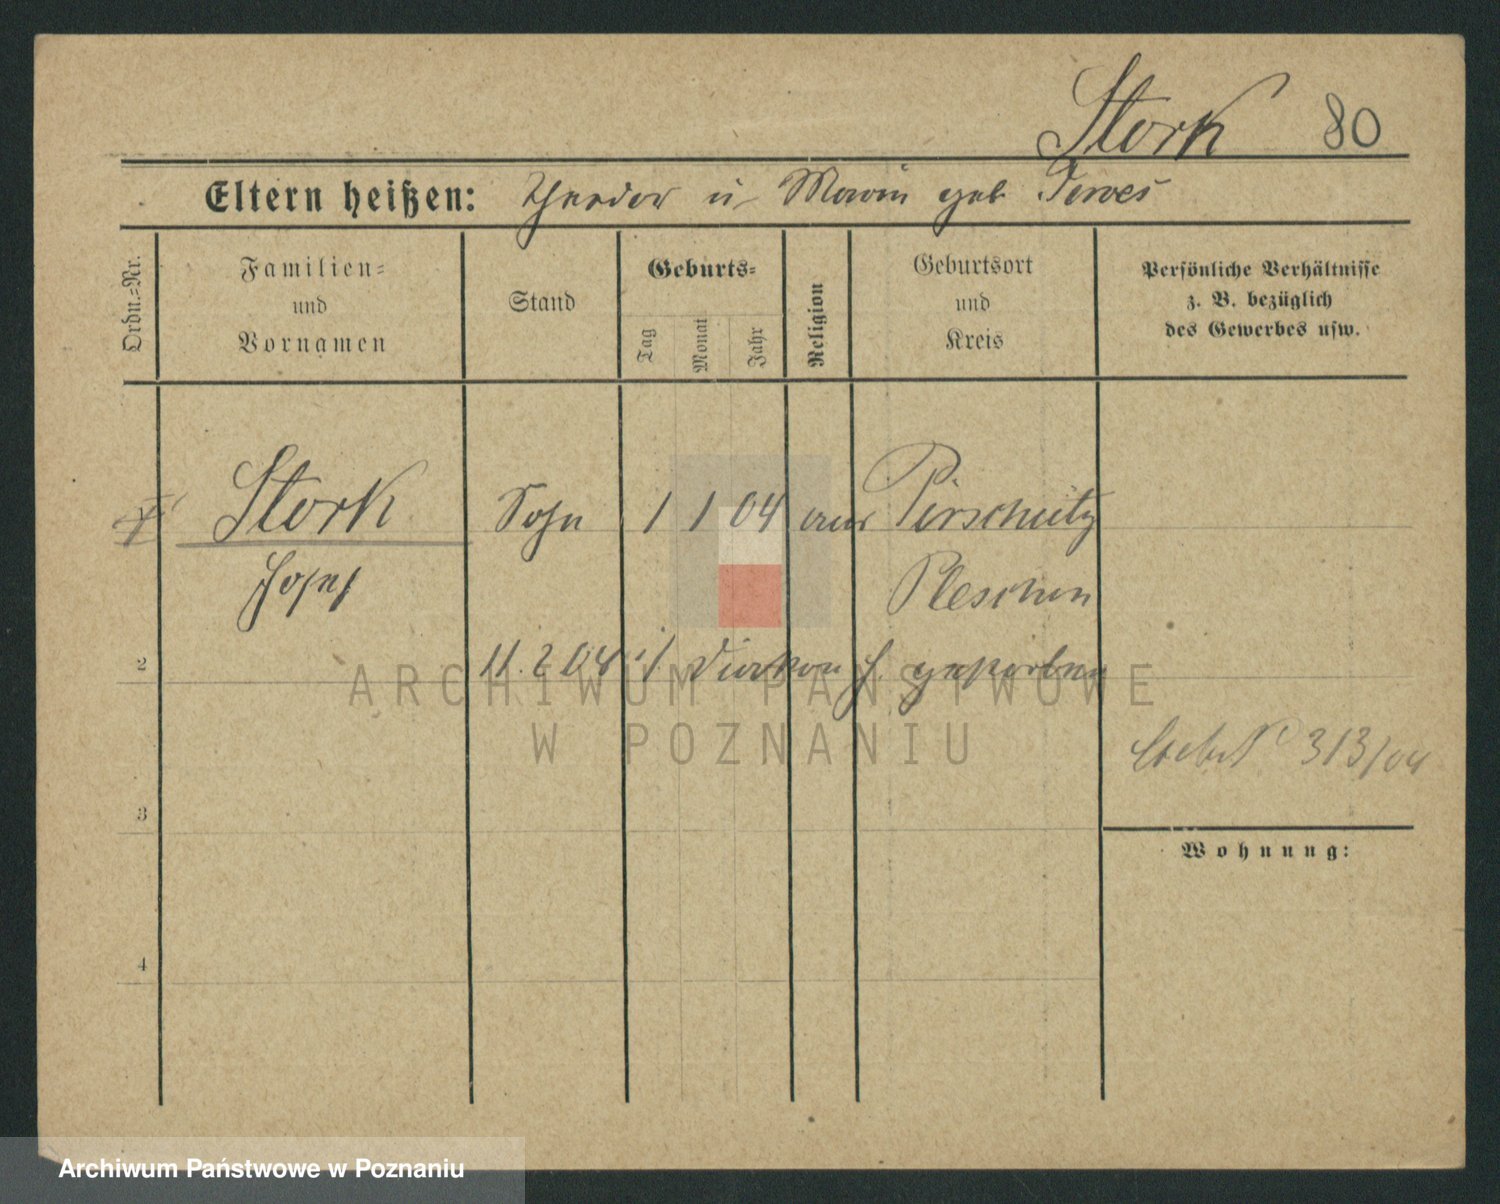 Stork 80
Eltern heißen: Theodor u Maria geb
Ordn.-Nr.
Familien-
und
Vornamen
Stand
Geburts-
Tag
Monat
Jahr
Religion
Geburtsort
und
Kreis
Persönliche Verhältnisse
z. B. bezüglich
des Gewerbes usw.
Stork Sohn 1 1 04 Pirschütz
Josef Pleschen
2 11.2.04 i. gestorben
313/04
3
Wohnung:
4
ARCHIWUM PAŃSTWOWE
W POZNANIU
Archiwum Państwowe w Poznaniu